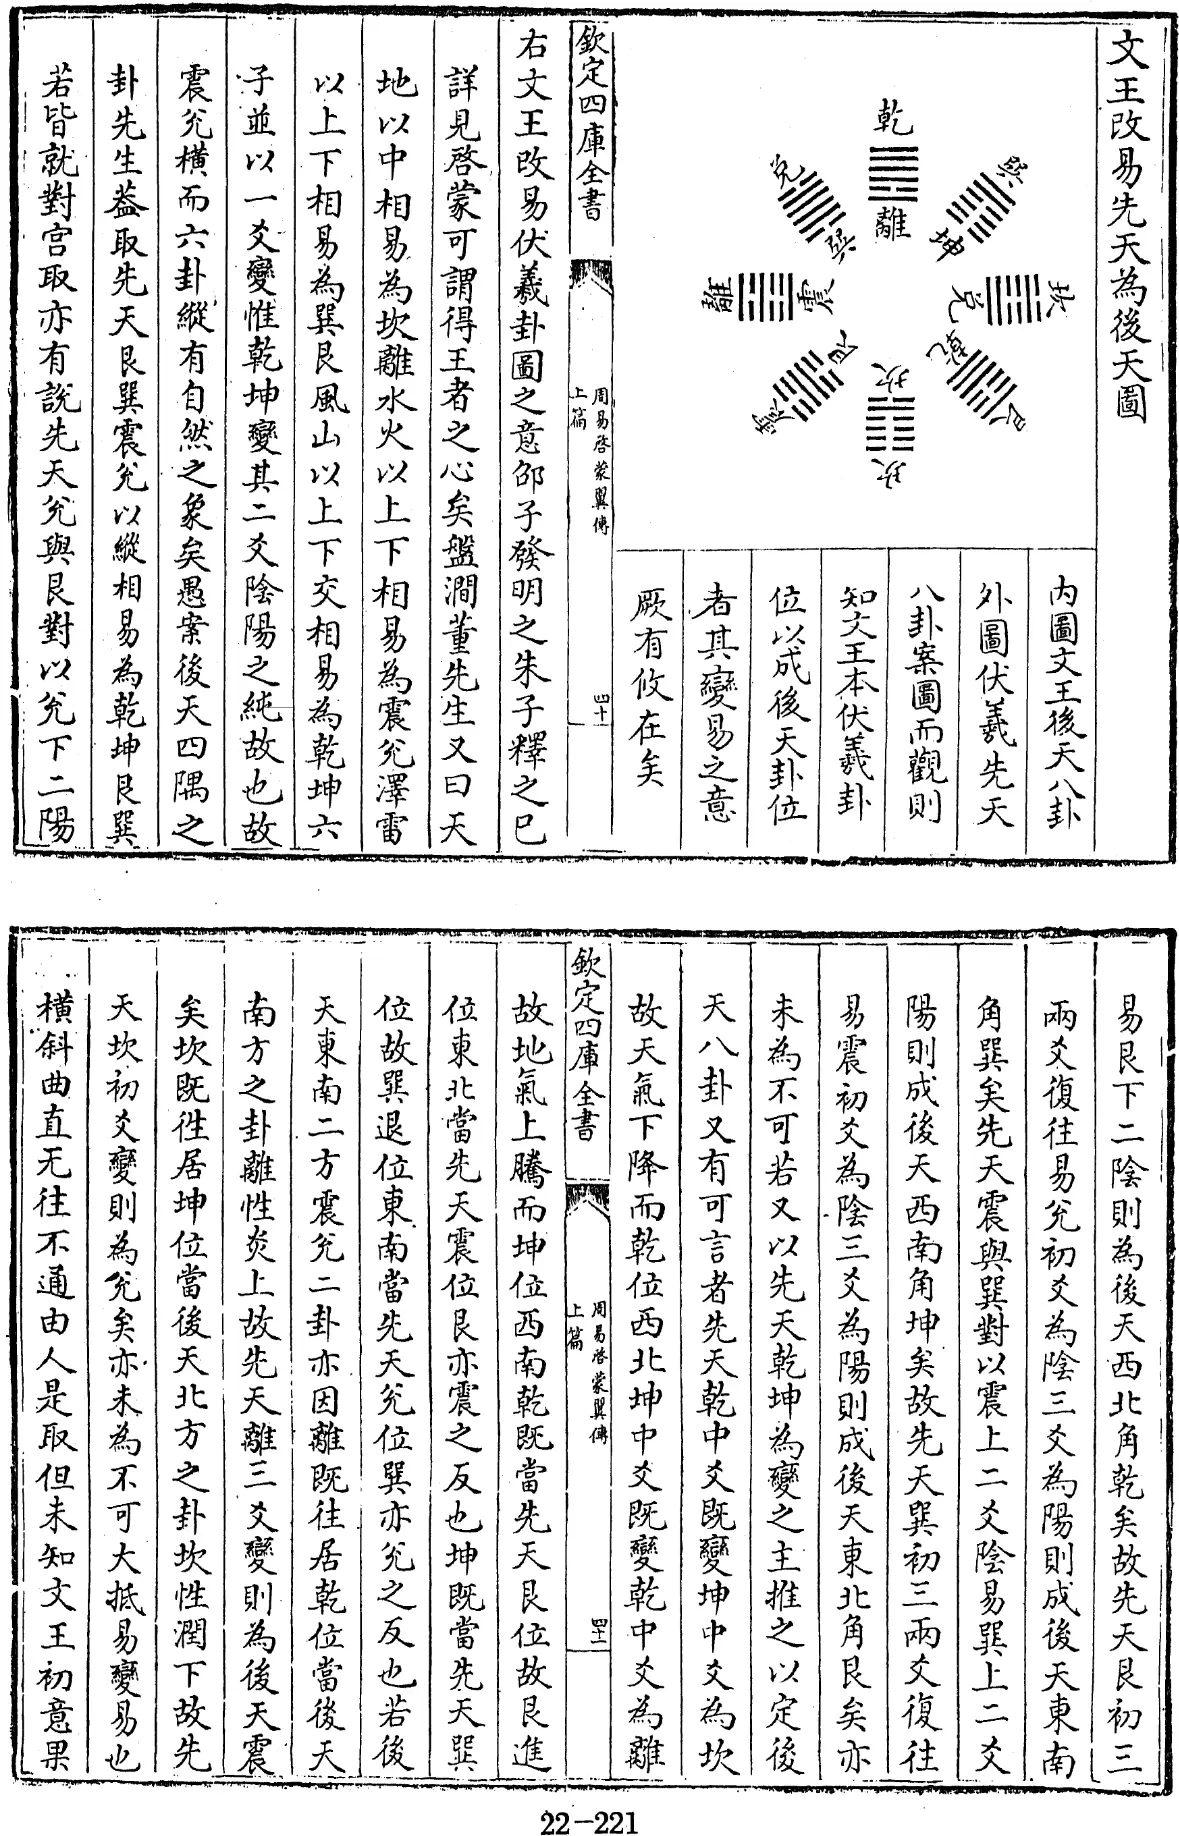 文王改易先天為後天圖
乾
離
巽
坤
坎
兌
艮
乾
坎
坎
艮
離
震
兌
巽
內圖文王後天八卦
外圖伏羲先天
八卦案圖而觀則
知文王本伏羲卦
位以成後天卦位
者其變易之意
厥有攸在矣
欽定四庫全書
周易啓蒙翼傳
上篇
四十
右文王改易伏羲卦圖之意邵子發明之朱子釋之已
詳見啓蒙可謂得王者之心矣盤澗董先生又曰天
地以中相易為坎離水火以上下相易為震兌澤雷
以上下相易為巽艮風山以上下交相易為乾坤六
子並以一爻變惟乾坤變其二爻陰陽之純故也故
震兌橫而六卦縱有自然之象矣愚案後天四隅之
卦先生葢取先天艮巽震兌以縱相易為乾坤艮巽
若皆就對宮取亦有說先天兌與艮對以兌下二陽
易艮下二陰則為後天西北角乾矣故先天艮初三
兩爻復往易兌初爻為陰三爻為陽則成後天東南
角巽矣先天震與巽對以震上二爻陰易巽上二爻
陽則成後天西南角坤矣故先天巽初三兩爻復往
易震初爻為陰三爻為陽則成後天東北角艮矣亦
未為不可若又以先天乾坤為變之主推之以定後
天八卦又有可言者先天乾中爻既變坤中爻為坎
故天氣下降而乾位西北坤中爻既變乾中爻為離
欽定四庫全書
周易啓蒙翼傳
上篇
四十一
故地氣上騰而坤位西南乾既當先天艮位故艮進
位東北當先天震位艮亦震之反也坤既當先天巽
位故巽退位東南當先天兌位巽亦兌之反也若後
天東南二方震兌二卦亦因離既往居乾位當後天
南方之卦離性炎上故先天離三爻變則為後天震
矣坎既徃居坤位當後天北方之卦坎性潤下故先
天坎初爻變則為兌矣亦未為不可大抵易變易也
橫斜曲直无往不通由人是取但未知文王初意果
22-221